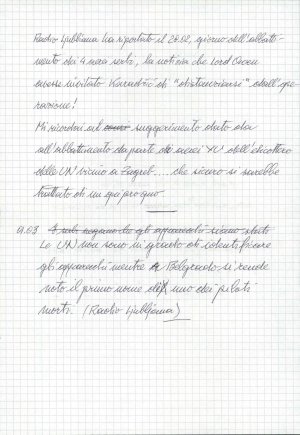 Radio Ljubljana ha riportato il 28.02, giorno dell'abbatti-
mento dei 4 aerei serbi, la notizia che Lord Owen
avesse invitato Karadžić di "distanziarsi" dall'ope-
razione!
Mi ricordai del suggerimento dato da
all'abbattimento da parte di aerei YU dell'elicottero
delle UN vicino a Zagreb.... che sicuro si sarebbe
trattato di un qui pro quo.
01.03 I serbi negano che gli apparecchi siano stati
Le UN non sono in grado di identificare
gli apparecchi mentre a Belgrado si rende
noto il primo nome di uno dei piloti
morti. (Radio Ljubljana)